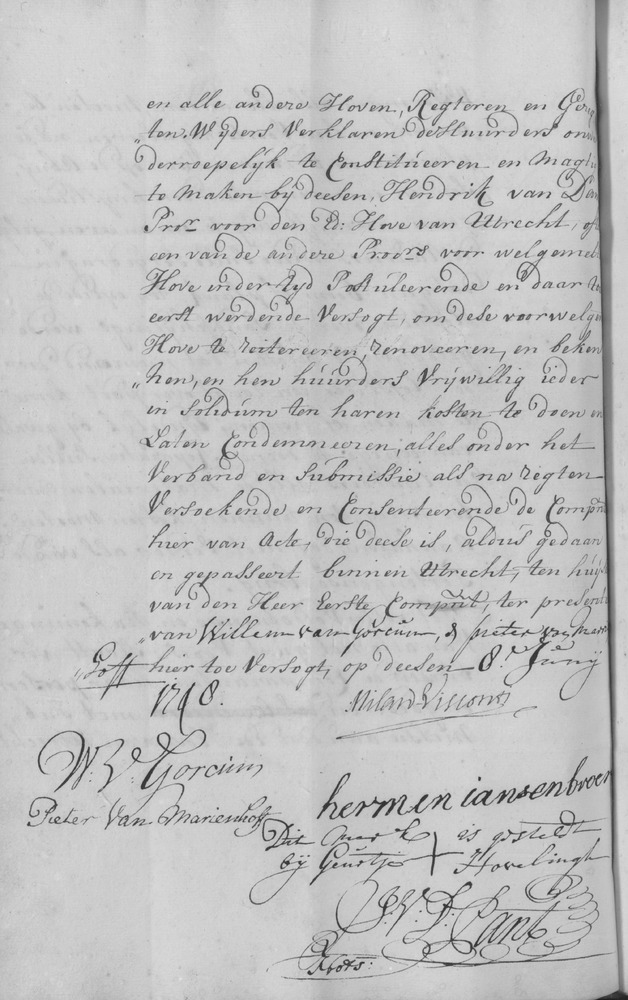 en alle andere Hoven, Regteren en Gerig
„ten. Wijders Verklaren de Huurders onwe
derroepelijk te Constitueeren en Magtig
te maken bij deesen, Hendrik van Dam
Procr voor den Ed: Hove van Utrecht, ofte
een van de andere Procrs voor welgemel
Hove inder tijd Postuleerende en daar toe
eerst werdende Versogt, om dese voor welgem
Hove te reitereeren, renoveeren, en beken
„nen, en hen huurders Vrijwillig ieder
in Solidum ten haren kosten te doen en
Laten Condemneeren, alles onder het
Verband en Submissie als na regten
Versoekende en Consenteerende de Compten
hier van Acte, die deese is, aldus gedaan
en gepasseert binnen Utrecht, ten huijse
van den Heer Eerste Compnt, ter presentie
„van Willem van Gorcum, & pieter van Marien
„hoff hier toe Versogt, op deesen 8e Junij
1748. Milan Visconti
W: V: Gorcum
Pieter Van Marienhoff
hermen iansen broer
Dit merk + is gestelt
bij Geurtje Hovelingh
J: V: D: Lant
Nots: